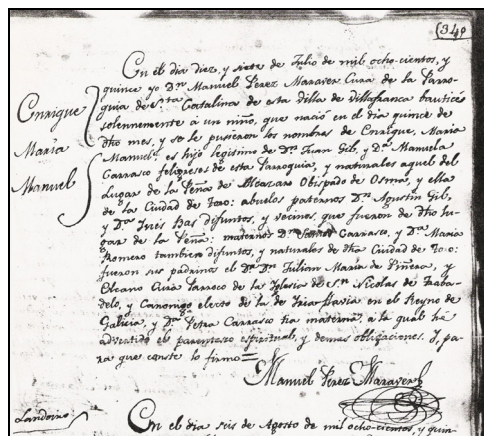 (340
En el dia diez, y siete de Julio de mil ocho-cientos, y
quince yo Dn. Manuel Perez Maraver Cura de la Parro-
quia de Sta. Catalina de esta Villa de Villafranca bauticé
solennemente á un niño, que nació en el dia quince de
dho mes, y se le pusieron los nombres de Enrique, Maria
Manuel, es hijo legitimo de Dn. Juan Gil, y Da. Manuela
Carrasco feligreses de esta Parroquia, y naturales aquel del
Lugar de la Peña de Alcazar Obispado de Osma, y ella
de la Ciudad de Toro: abuelos paternos Dn. Agustin Gil,
y Da. Inés Has difuntos, y vecinos, que fueron de dho Lu-
gar de la Peña: maternos Dn. Carrasco, y Da. Maria
Romero tambien difuntos, y naturales de dha Ciudad de Toro:
fueron sus padrinos el Dr. Dn. Julian Maria de Piñera, y
Cura Parroco de la Iglesia de Sn. Nicolas de Traba-
delo, y Canonigo electo de la de Iria-flavia en el Reyno de
Galicia, y Da. Petra Carrasco tia materna, á la qual hé
advertido el parentesco espiritual, y demas obligaciones. Y, pa-
ra que conste lo firmo=
Enrique
Maria
Manuel
Manuel Perez Maraver
Landoiro
En el dia seis de Agosto de mil ocho-cientos, y quin-